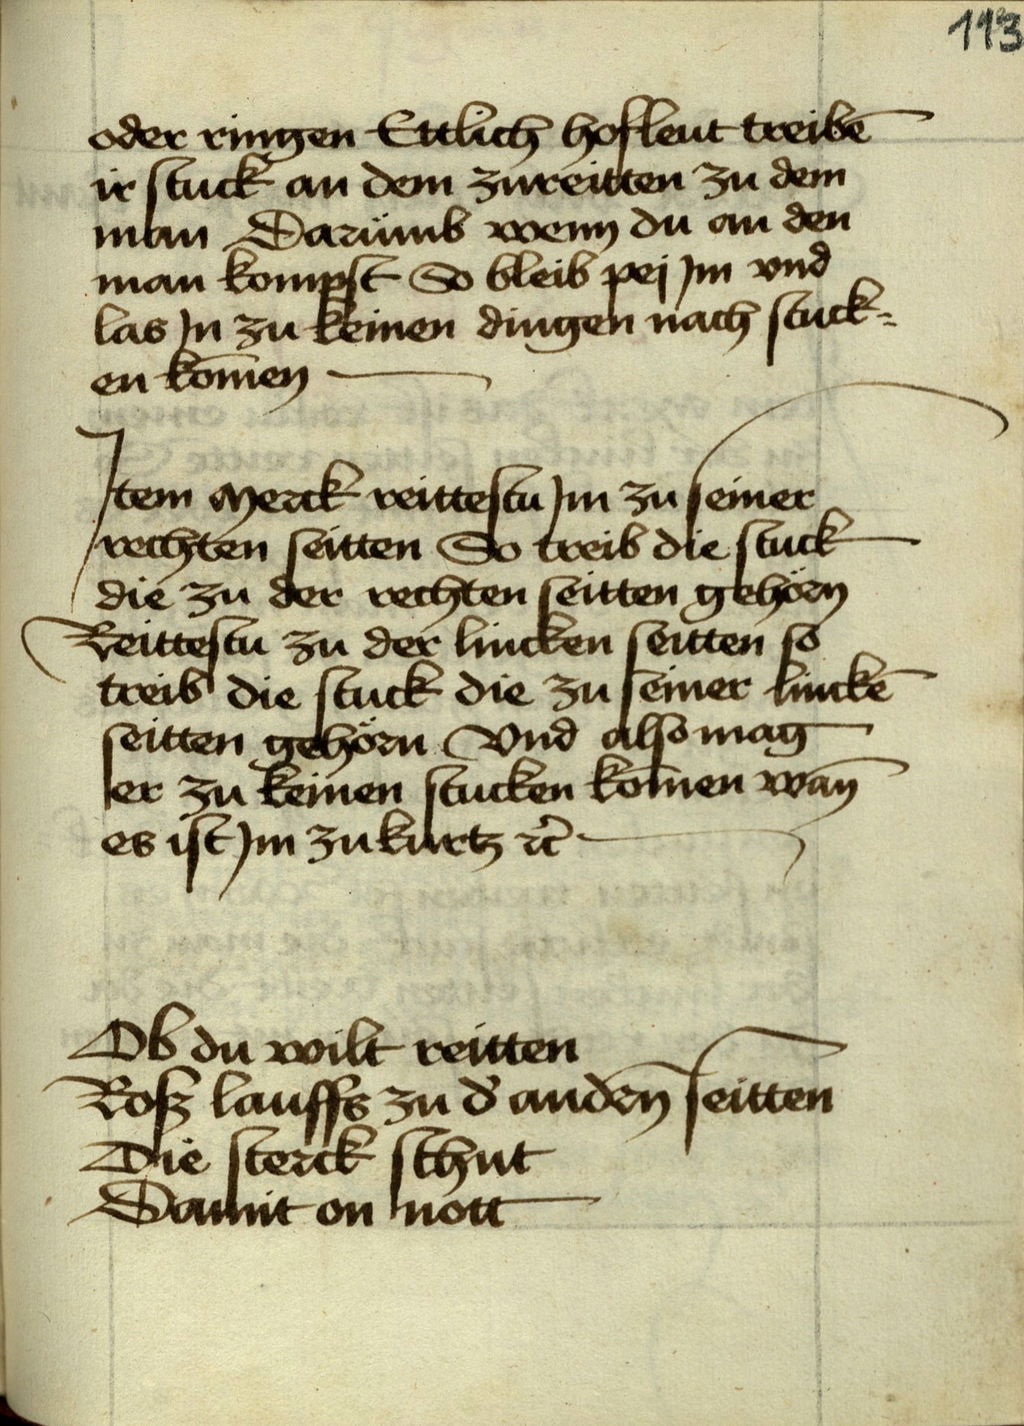 113
oder ringen Ettlich hofleut treibē
ir stuck an dem zureitten zu dem
man Darümb wenn du an den
man kompst So bleib pej Jm vnd
las Jn zu keinen dingen nach stuck=
en kōmen
Jtem Merck reittestu Jm zu seiner
rechten seitten So treib die stuck
die zu der rechten seitten gehörn
Reittestu zu der lincken seitten so
treib die stuck die zu seiner linckē
seitten gehörn Vnd also mag
er zu keinen stucken kōmen wan̄
es ist Jm zu kurtz ꝛc̄
Ob du wilt reitten
Rosz lauffs zu d' andern̄ seitten
Die sterck schut
Damit on nott